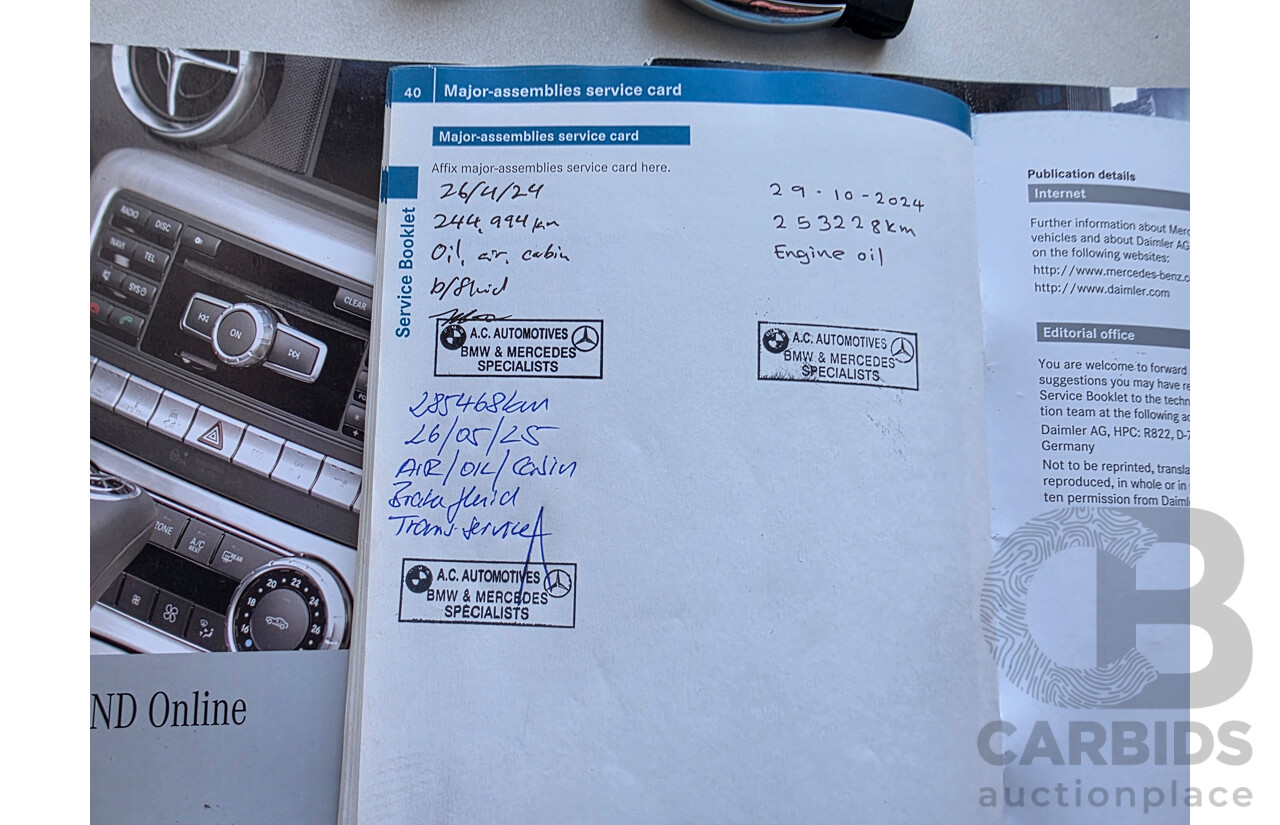 40 Major-assemblies service card
Major-assemblies service card
Affix major-assemblies service card here.
26/4/24
244,994km
Oil, air, cabin
b/fluid
A.C. AUTOMOTIVES
BMW & MERCEDES
SPECIALISTS
29-10-2024
253228km
Engine oil
A.C. AUTOMOTIVES
BMW & MERCEDES
SPECIALISTS
285468km
26/05/25
AIR/OIL/Cabin
Brake fluid
Trans-service
A.C. AUTOMOTIVES
BMW & MERCEDES
SPECIALISTS
Service Booklet
Publication details
Internet
Further information about Merc
vehicles and about Daimler AG
on the following websites:
http://www.mercedes-benz.c
http://www.daimler.com
Editorial office
You are welcome to forward
suggestions you may have re
Service Booklet to the techn
tion team at the following ad
Daimler AG, HPC: R822, D-7
Germany
Not to be reprinted, transla
reproduced, in whole or in
ten permission from Daiml
RADIO
DISC
NAVI
TEL
SYS
CLEAR
ON
ZONE
A/C
REST
REAR
16 18 20 22 24 26
ND Online
CARBIDS
auctionplace